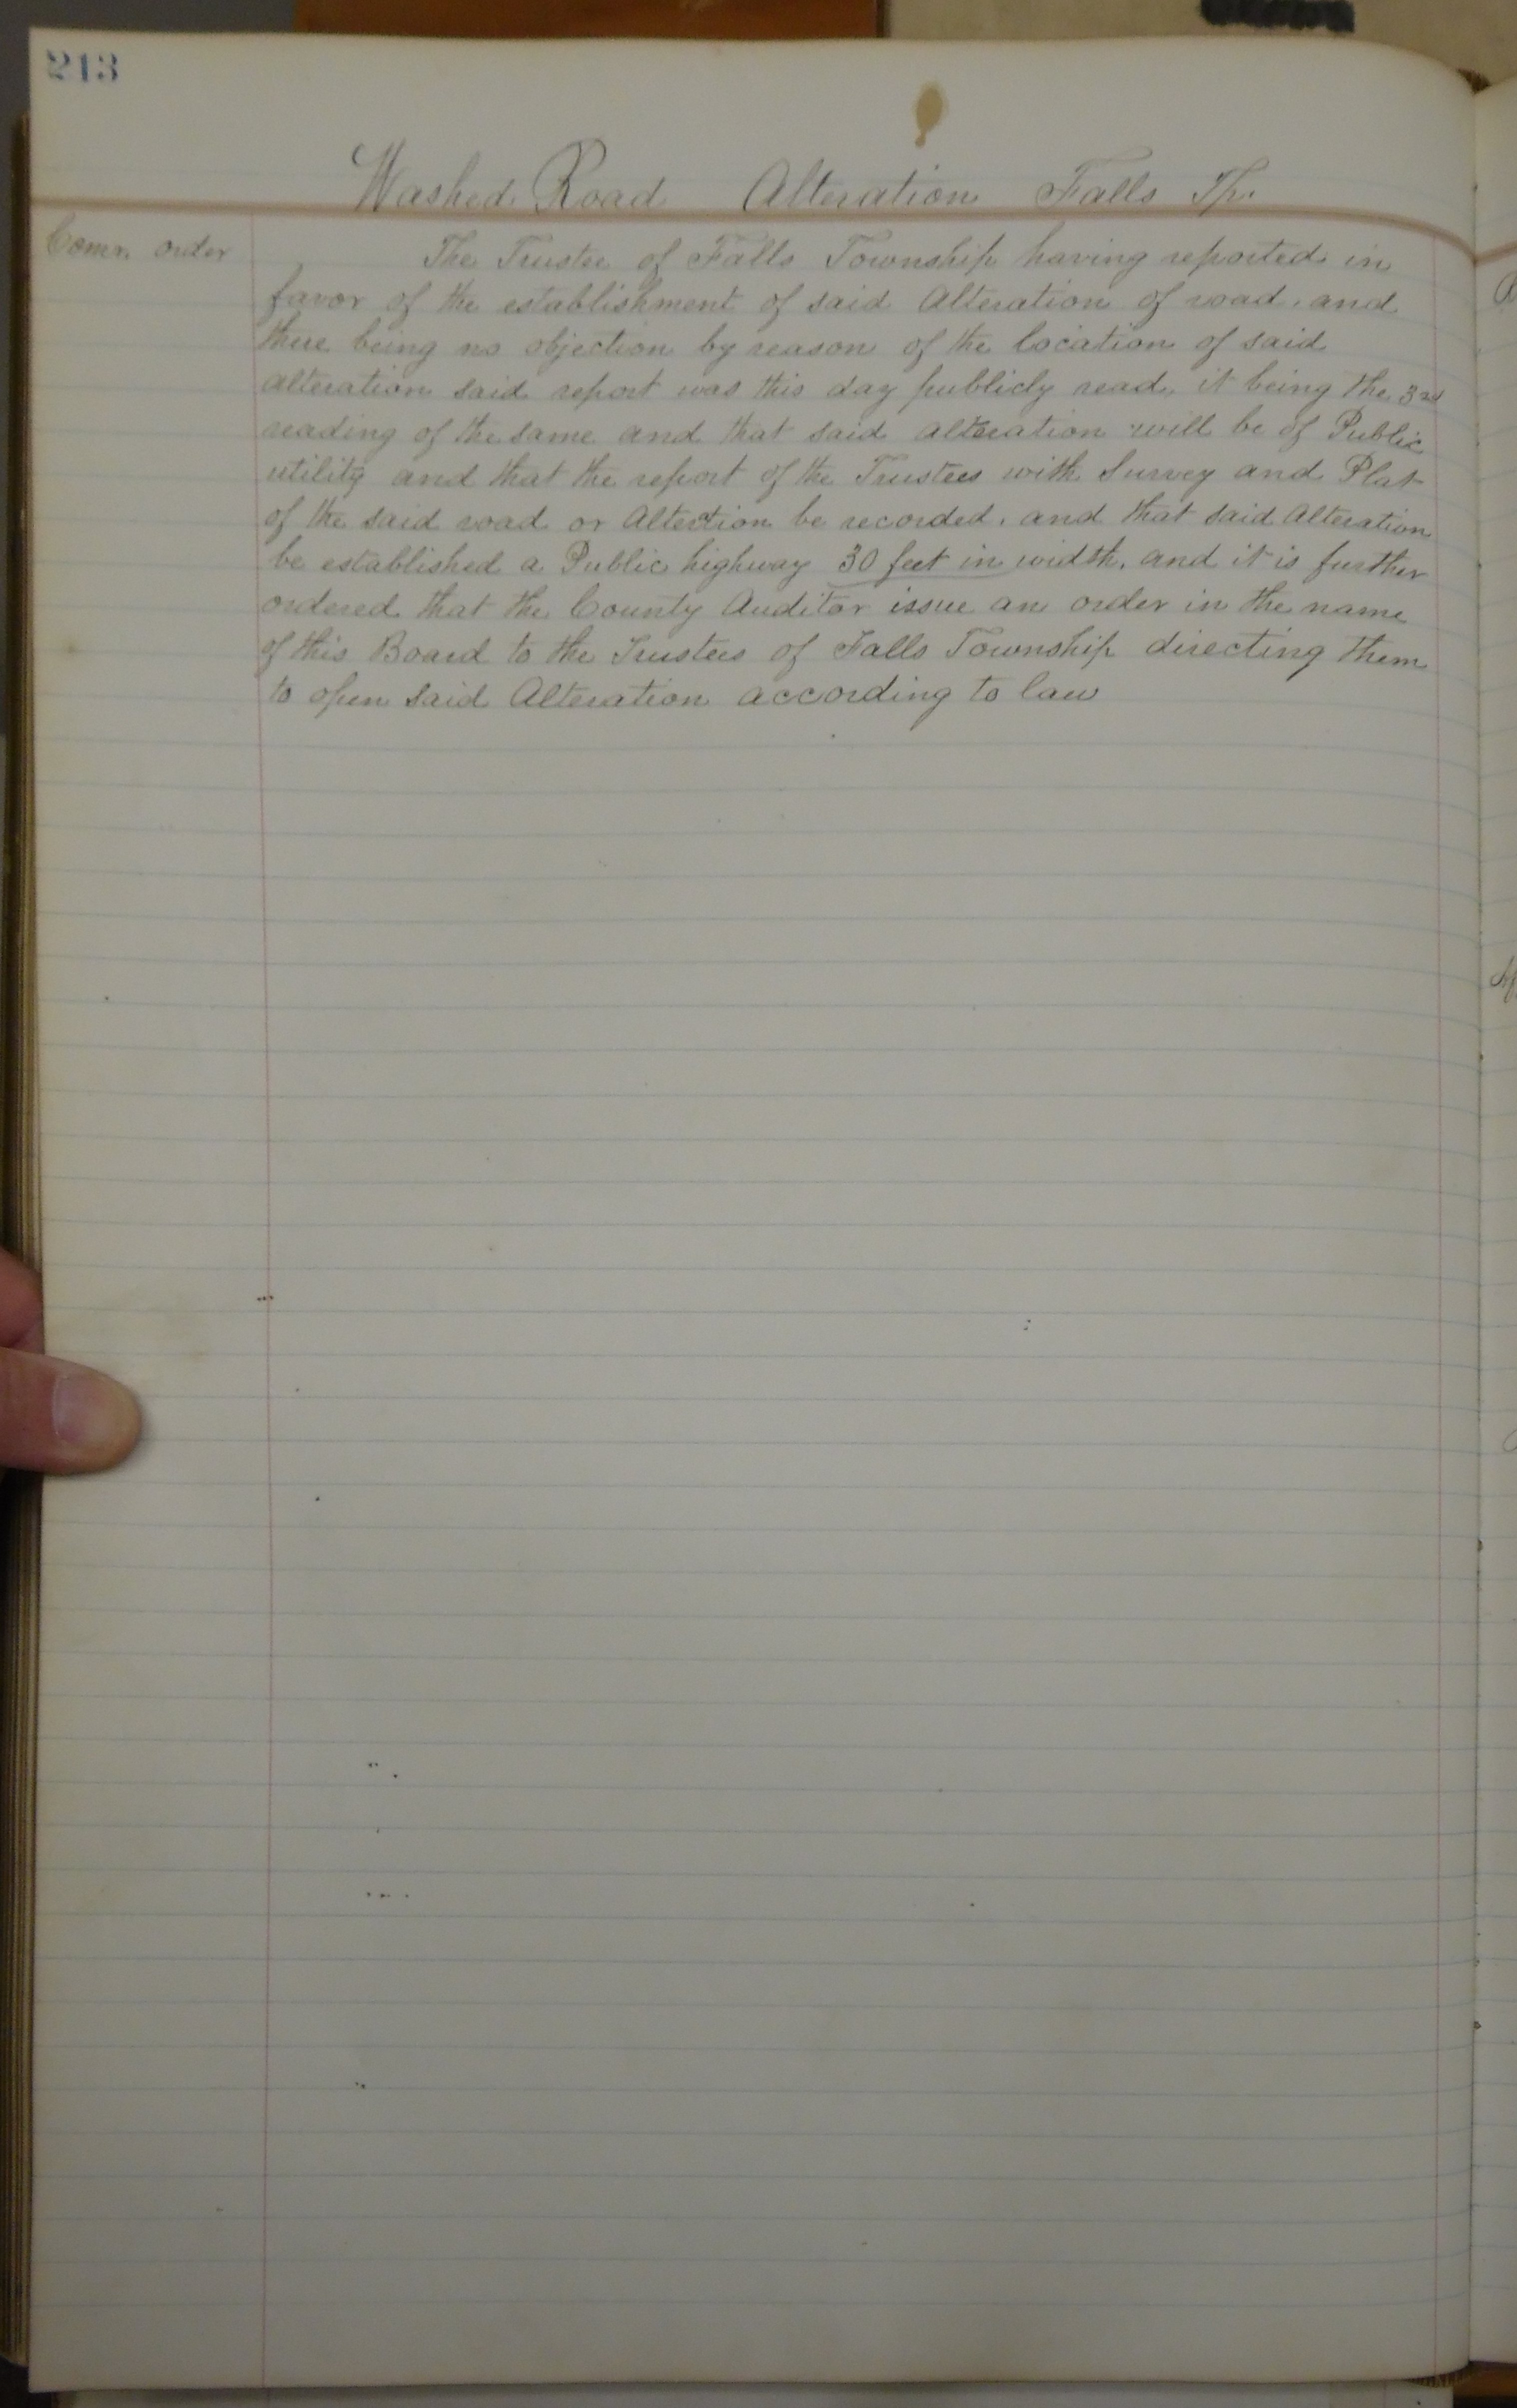 213
Washed Road Alteration Falls Tp.
Comr. order
The Trustee of Falls Township having reported in
favor of the establishment of said Alteration of road, and
there being no objection by reason of the location of said
alteration said report was this day publicly read, it being the 3rd
reading of the same and that said alteration will be of Public
utility and that the report of the Trustees with Survey and Plat
of the said road or Alteration be recorded, and that said Alteration
be established a Public highway 30 feet in width, and it is further
ordered that the County Auditor issue an order in the name
of this Board to the Trustees of Falls Township directing them
to open said Alteration according to law